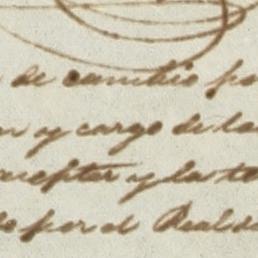 de cambio po
n y cargo de la
aceptar y la te
do por el Real de